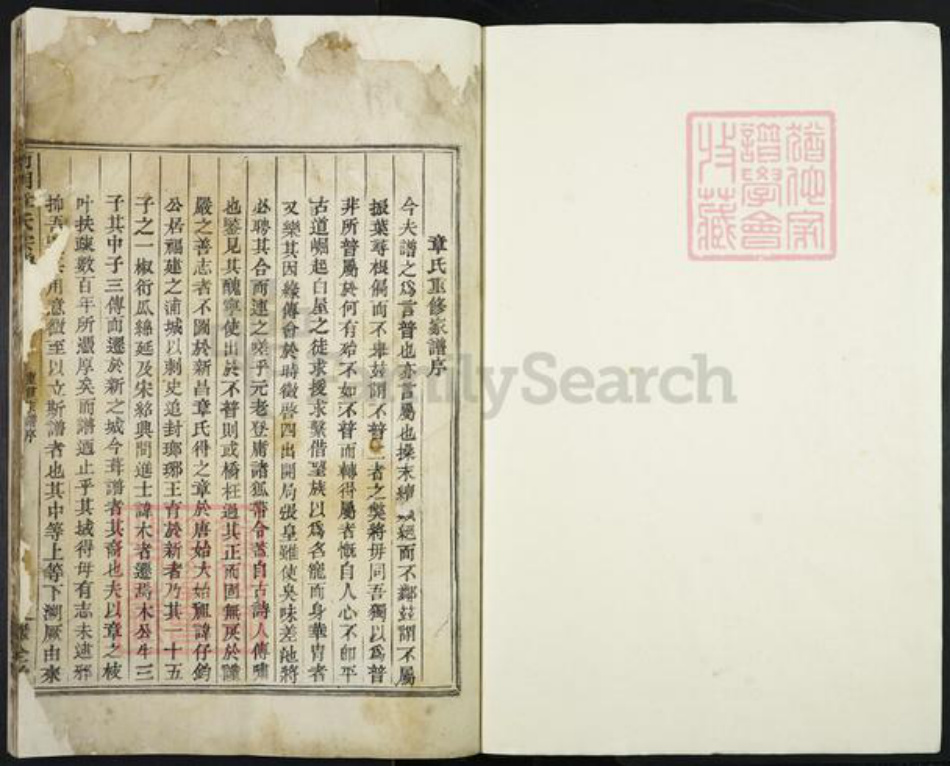 章氏重修家譜序
今夫譜之爲言普也亦言屬也操末續 絕而不鄰茲謂不屬
振葉尋根偈而不舉茲謂不普二者之獘將毋同吾獨以爲普
非所普屬於何有殆不如不普而轉得屬者慨自人心不卽平
古道崛起白屋之徒求援求繫借望族以爲名寵而身華冑者
又樂其因緣傅會於時徵啓四出開局張皇雖使臭味差池將
必聘其合而連之嗟乎元老登庸諸狐帶令 自古詩人傳嘯
也鑒見其醜寧使出於不普則或橋枉過其正而固無戾於謹
嚴之善志者不圖於新昌章氏得之章於唐始大始祖諱仔鈞
公居福建之浦城以刺史追封瑯琊王育於新者乃其一十五
子之一椒衍瓜緜延及宋紹興間進士諱木者遷焉木公生三
子其中子三傳而遷於新之城今葺譜者其裔也夫以章之枝
叶扶疎數百年所憑厚矣而譜迺止乎其城得毋有志未逮邪
抑吾 其用意微至以立斯譜者也其中等上等下溯厥由來
章氏
譜序
猶他家
譜學會
收藏
FamilySearch